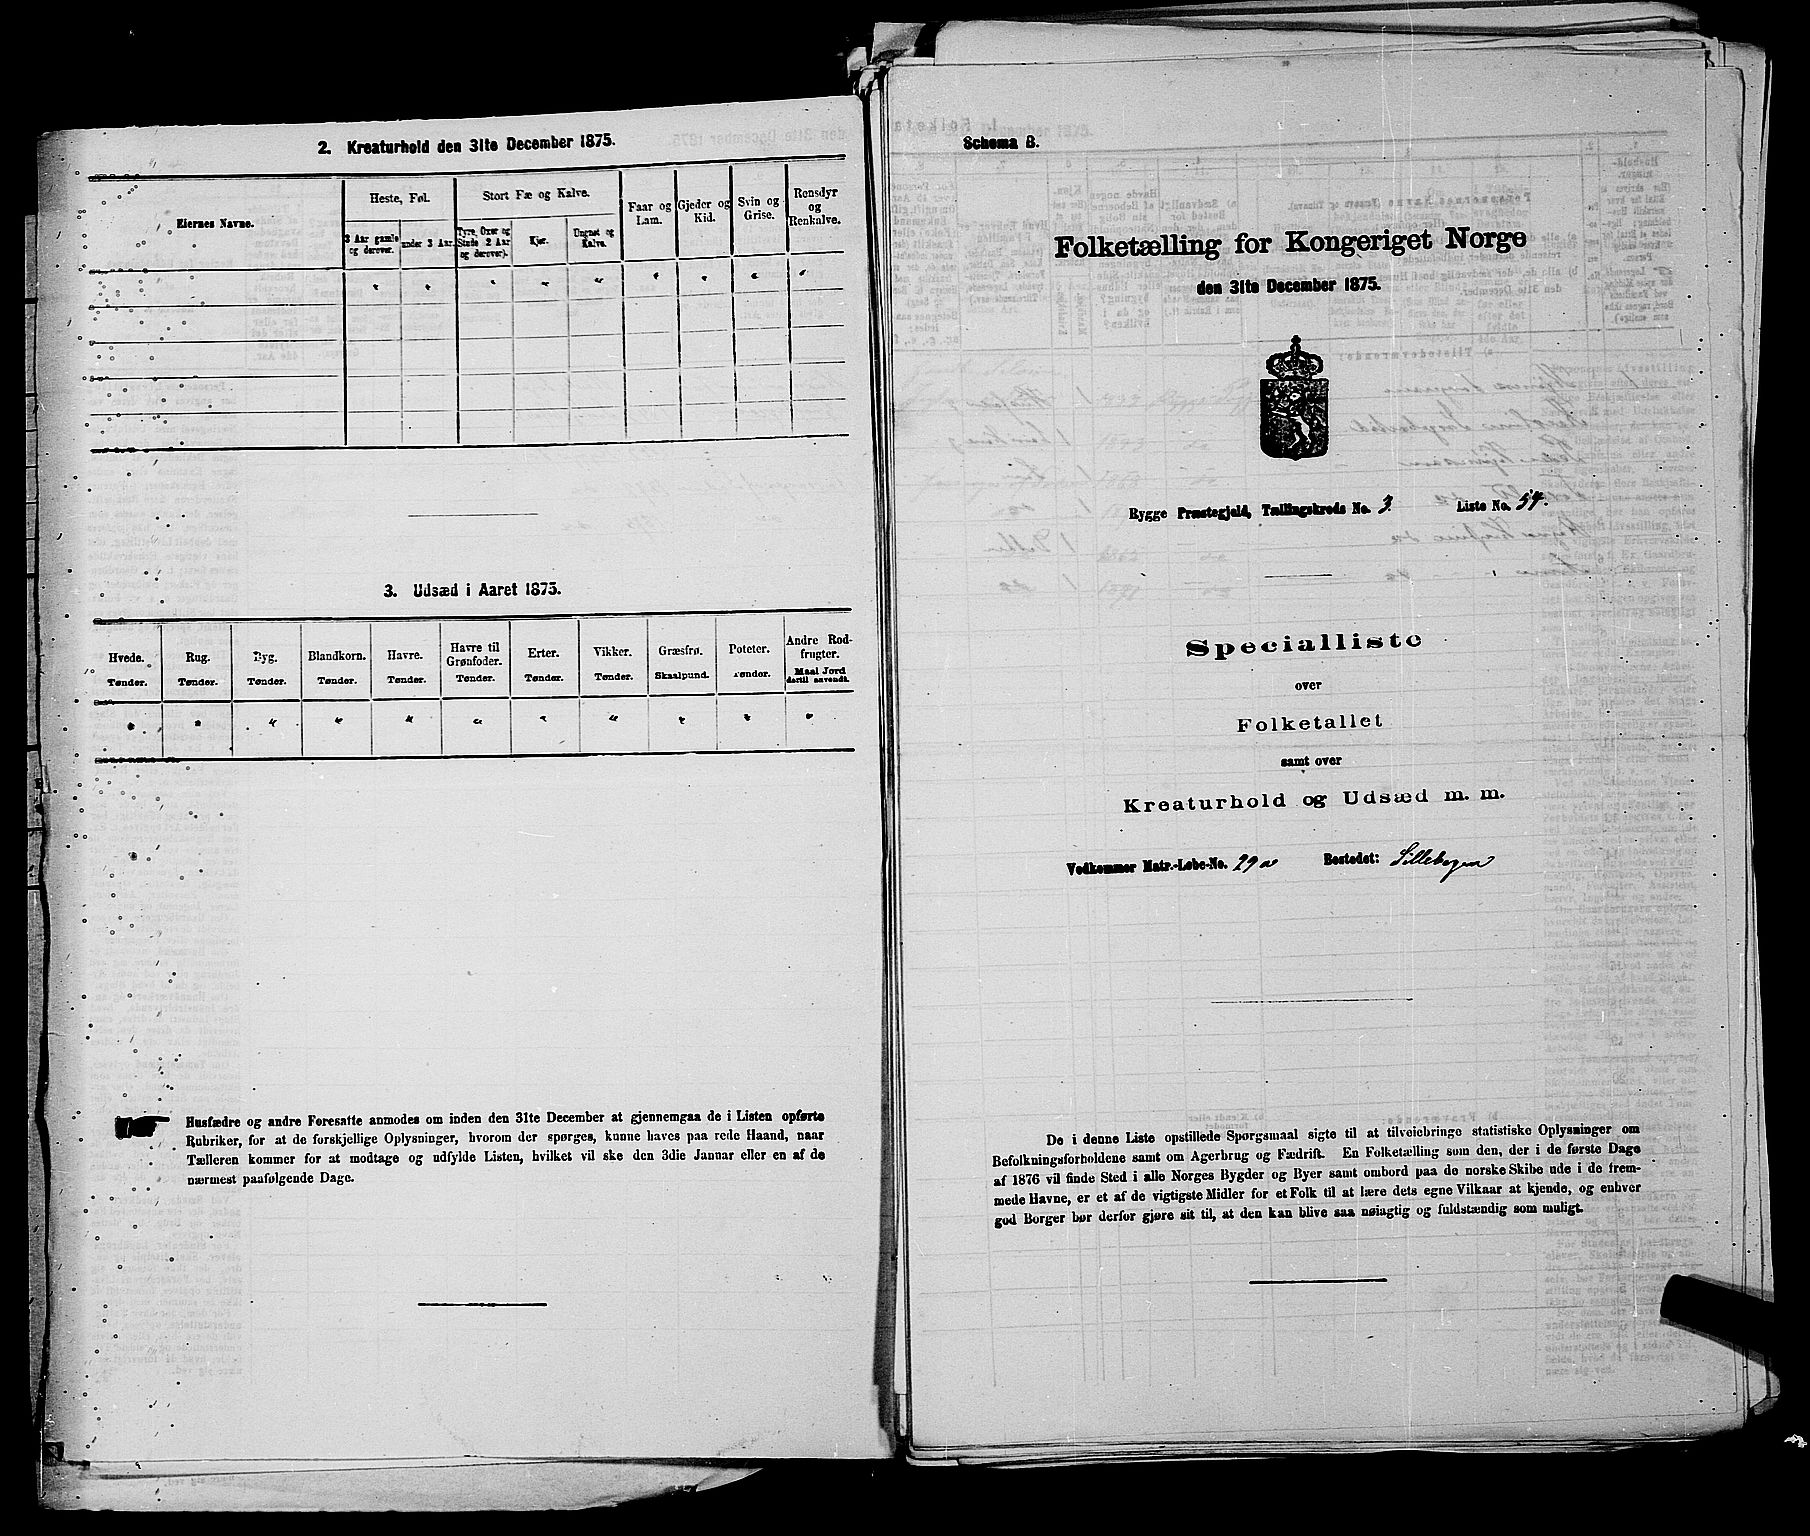 2. Kreaturhold den 31te December 1875.
Eiernes Navne.
Heste, Føl.
3 Aar gamle og derover.
under 3 Aar.
Stort Fæ og Kalve.
Tyre, Oxer og Stude 2 Aar og derover).
Kjør.
Ungnøt og Kalve.
Faar og Lam.
Gjeder og Kid.
Svin og Grise.
Rensdyr og Renkalve.
" " " " " " " " "
3. Udsæd i Aaret 1875.
Hvede. Rug. Byg. Blandkorn. Havre. Havre til Grønfoder. Erter. Vikker. Græsfrø. Poteter. Andre Rodfrugter.
Tønder. Tønder. Tønder. Tønder. Tønder. Tønder. Tønder. Tønder. Skaalpund. Tønder. Maal Jord dertil anvendt.
" " " " " " " " " " "
Husfædre og andre Foresatte anmodes om inden den 31te December at gjennemgaa de i Listen opførte
Rubriker, for at de forskjellige Oplysninger, hvorom der spørges, kunne haves paa rede Haand, naar
Tælleren kommer for at modtage og udfylde Listen, hvilket vil ske den 3die Januar eller en af de
nærmest paafølgende Dage.
Schema B.
Folketælling for Kongeriget Norge
den 31te December 1875.
Rygge Præstegjeld, Tællingskreds No. 3. Liste No. 54.
Specialliste
over
Folketallet
samt over
Kreaturhold og Udsæd m. m.
Vedkommer Matr.-Løbe-No. 29a Bostedet: Sillebogen
De i denne Liste opstillede Spørgsmaal sigte til at tilveiebringe statistiske Oplysninger om
Befolkningsforholdene samt om Agerbrug og Fædrift. En Folketælling som den, der i de første Dage
af 1876 vil finde Sted i alle Norges Bygder og Byer samt ombord paa de norske Skibe ude i de frem-
mede Havne, er et af de vigtigste Midler for et Folk til at lære dets egne Vilkaar at kjende, og enhver
god Borger bør derfor gjøre sit til, at den kan blive saa nøiagtig og fuldstændig som muligt.